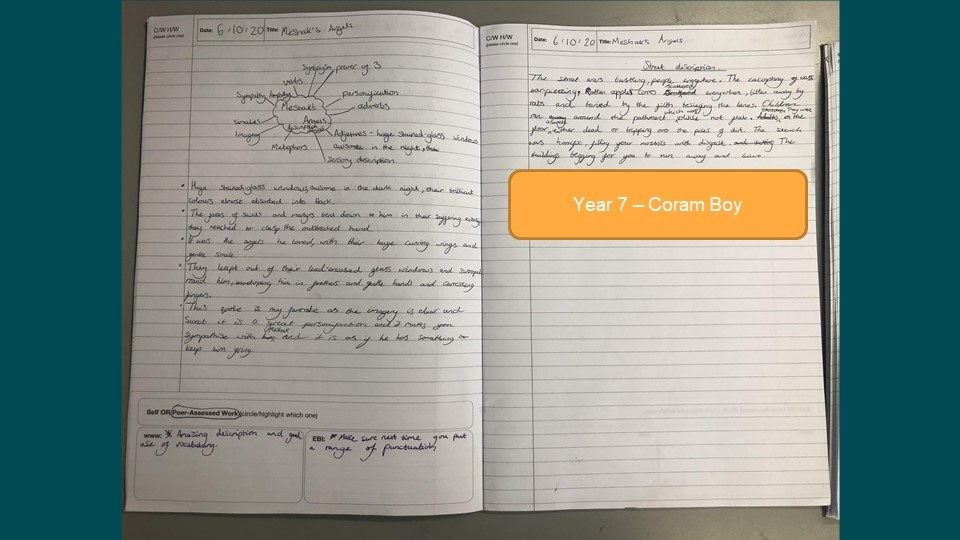 C/W H/W
(please circle one)
Date: 6/10/20 Title: Meshak's Angels
Symbolism power of 3
verbs
Sympathy
personification
adverbs
Meshak's
Angels
description
similes
Imagery
Metaphors
Adjectives - huge stained-glass windows,
awesome in the night, their
Sensory description
• Huge stained-glass windows, awesome in the dark night, their brilliant
colours almost absorbed into black.
• The gazes of saints and martyrs bent down to him in their suffering ecstasy
they reached to clasp the outstretched hand.
• It was the angels he loved, with their huge curving wings and
gentle smile.
• They leapt out of their lead-encased glass windows and swooped
round him, enveloping him in feathers and gentle hands and caressing
fingers.
• This quote is my favorite as the imagery is clear and
sweet it is a great personifaction and it makes you
sympathise with Meshak and it is as if he has something to
keep him going.
Self OR Peer-Assessed Work (circle/highlight which one)
WWW: Amazing description and good
use of vocabulary.
EBI: Make sure next time you put
a range of punctuation
C/W H/W
(please circle one)
Date: 6/10/20 Title: Meshak's Angels
Street description
The street was bustling, people everywhere. The cacophony of was
earpiercing. Rotten apple cores scattered everywhere, litter away by
rats and buried by the filth the lanes. Children
ran around the pathment which was not plain. on the
floor, either dead or tripping over the piles of dirt. The stench
was horrific, filling your nostrils with disgust. The
buildings begging for you to run away and save.
Year 7 – Coram Boy